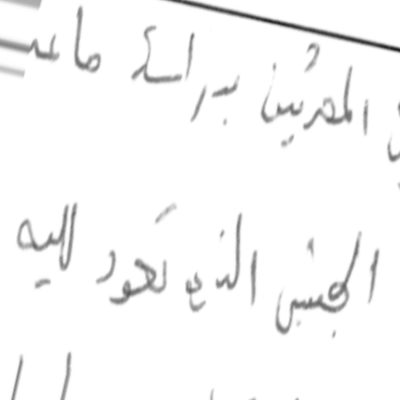 المصريين بدراسة ما عند
الجنس الذي تعود إليه